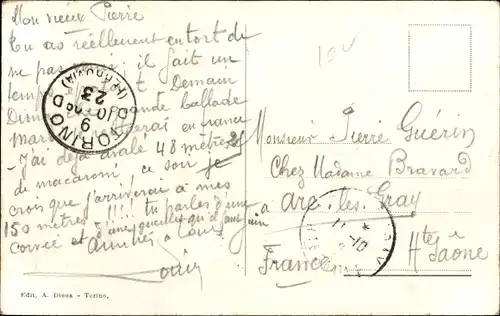 Mon vieux Pierre
Tu as réellement eu tort de
ne pas il fait un
temps Demain
Dimanche grande ballade
Mardi en france
- J'ai déjà avalé 48 mètres
de macaroni. ce soir je
crois que j'arriverai à mes
150 mètres !!!! tu parles d'une
corvée et d'une gueule qu'à
Amitiés à tous
Louis
TORINO
(FERROVIA)
23
9
10
Monsieur Pierre Guérin
Chez Madame Bravard
à
Arc-les-Gray
Hte Saône
France
Edit. A. Diena - Torino.